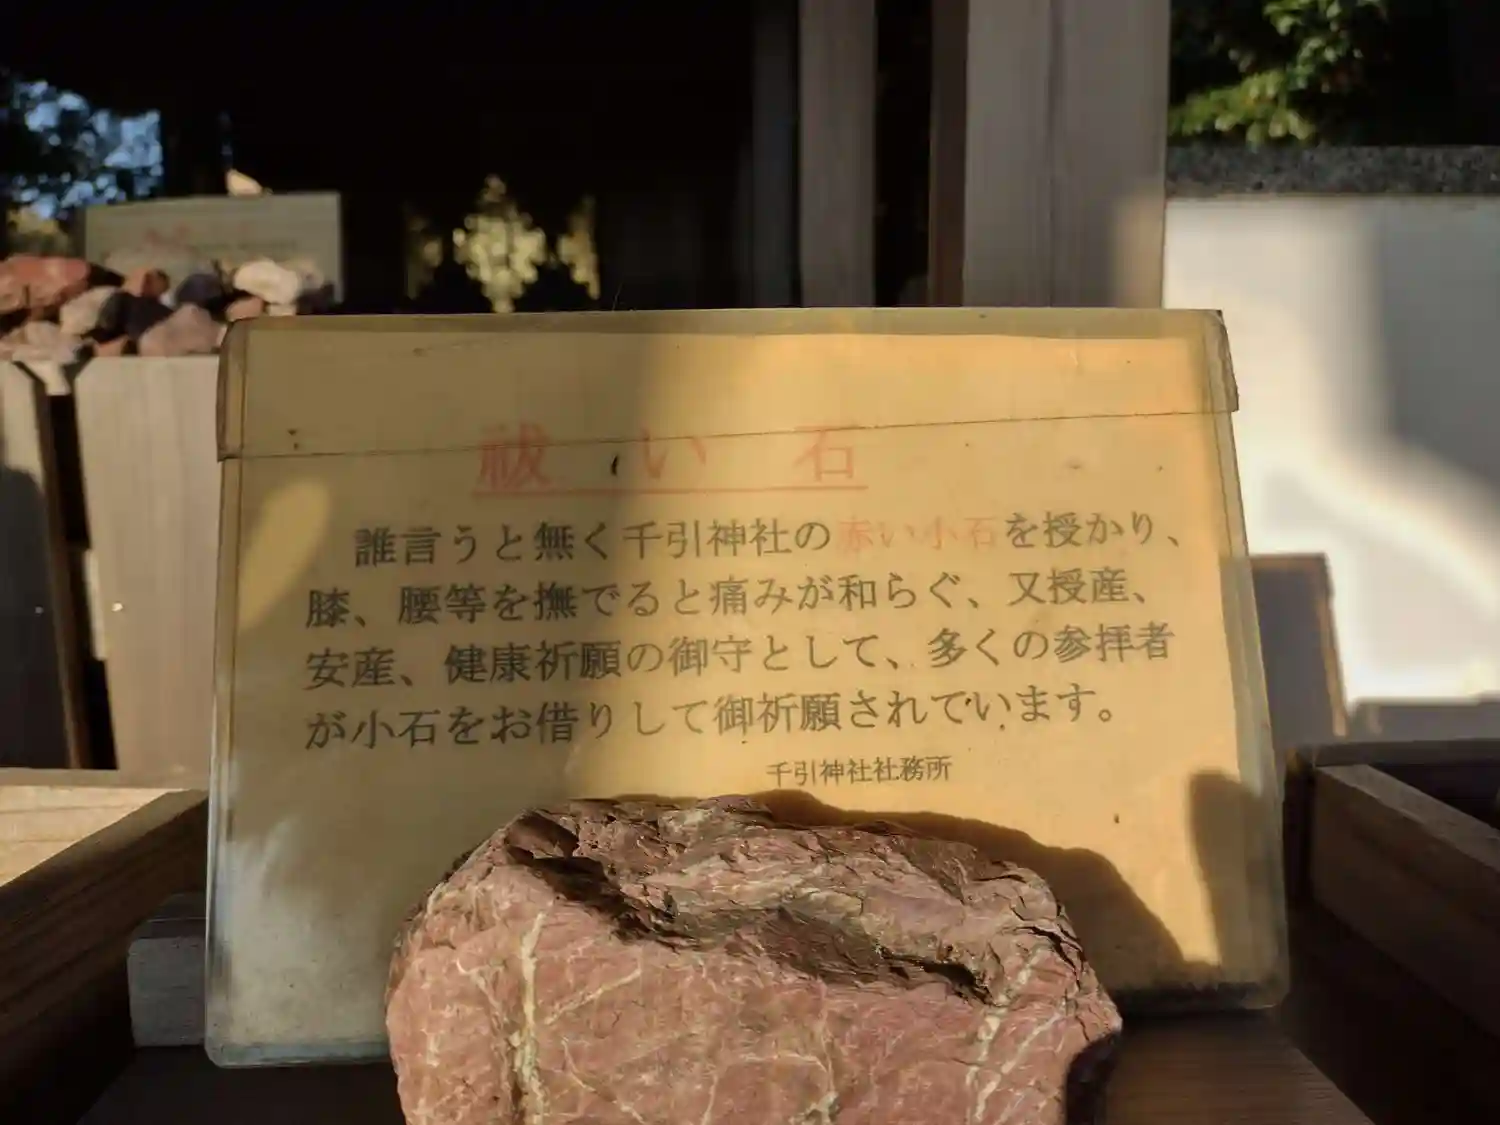 祓い石
誰言うと無く千引神社の赤い小石を授かり、
膝、腰等を撫でると痛みが和らぐ、又授産、
安産、健康祈願の御守として、多くの参拝者
が小石をお借りして御祈願されています。
千引神社社務所